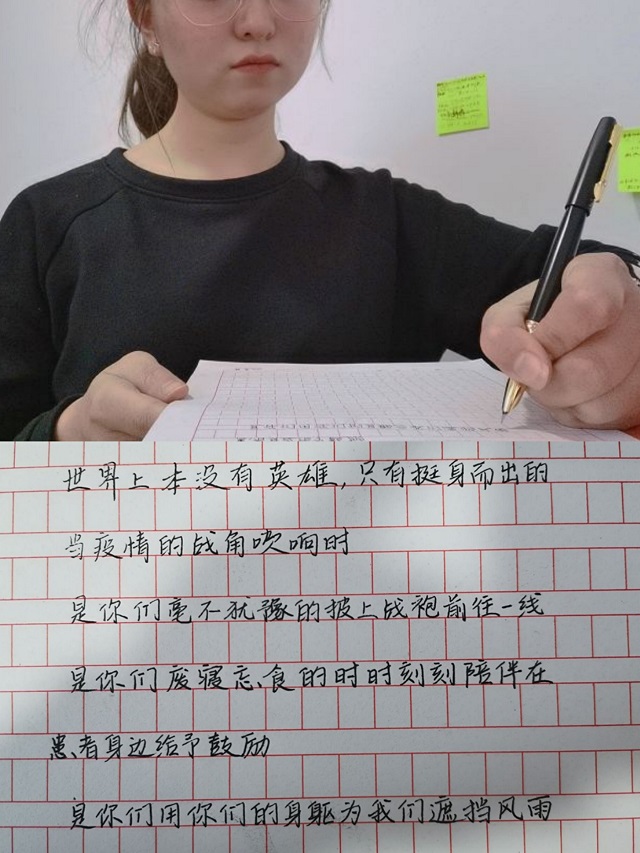 世界上本没有英雄，只有挺身而出的
当疫情的战角吹响时
是你们毫不犹豫的披上战袍前往一线
是你们废寝忘食的时时刻刻陪伴在
患者身边给予鼓励
是你们用你们的身躯为我们遮挡风雨